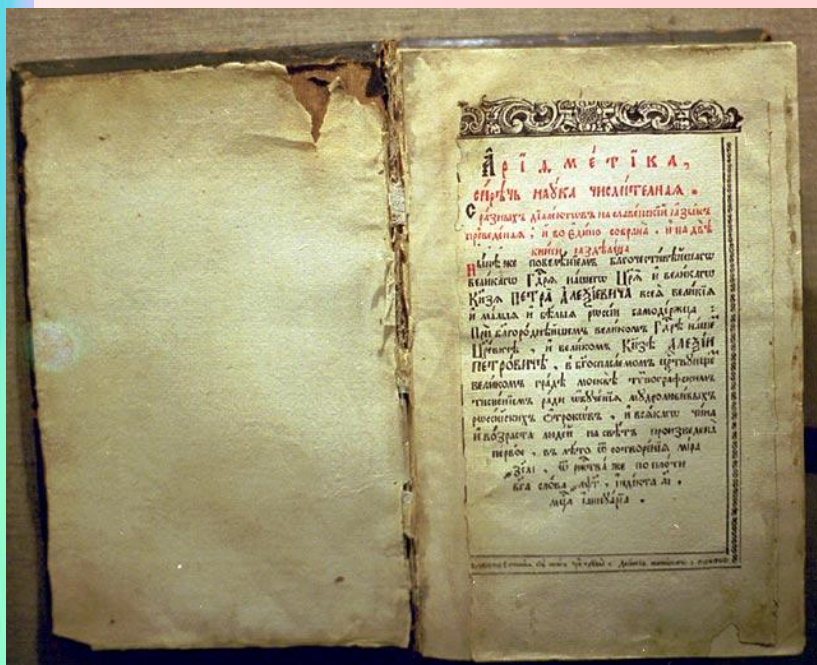 А р і ѳ м е т і к а ,
си́рѣчь наꙋ́ка числи́телная .
С ра́зныхъ дїале́ктѡвъ на славе́нскїй ꙗ҆зы́къ
преведе́наѧ , и҆ во є҆ди́но собрана̀ , и҆ на двѣ̀
кни́ги раздѣлена̀
Ны́нѣ же повелѣ́нїемъ благочести́вѣйшагѡ
вели́кагѡ Гдⷭ҇рѧ на́шегѡ Цр҃ѧ̀ и҆ вели́кагѡ
Кн҃зѧ ПЕТРА̀ А҆ЛЕѮІ́ЕВИЧА всеѧ̀ вели́кїѧ
и҆ ма́лыѧ и҆ бѣ́лыѧ рѡссі́и самоде́ржца :
Прѝ благоро́днѣйшемъ вели́комъ Гдⷭ҇рѣ на́шемъ
Цр҃е́вичѣ , и҆ вели́комъ Кн҃зѣ А҆ЛЕѮІ́И
ПЕТРО́ВИЧѢ , в бг҃оспаса́емомъ црⷭ҇твꙋющемъ
вели́комъ гра́дѣ москвѣ̀ тѷпогра́фскимъ
тисне́нїемъ ра́ди ѡ҆бꙋче́нїѧ мꙋдролюби́выхъ
рѡссі́йскихъ ѻ҆́трокѡвъ , и҆ всѧ́кагѡ чи́на
и҆ во́зраста люде́й на свѣ́тъ произведена̀
пе́рвое , въ лѣ́то ѿ сотворе́нїѧ мі́ра
҂зсаі , ѿ ржⷭ҇тва́ же по пло́ти
бг҃а сло́ва ҂аѱг , і҆ндї́кта аі .
мцⷭ҇а і҆аннꙋа́рїа .